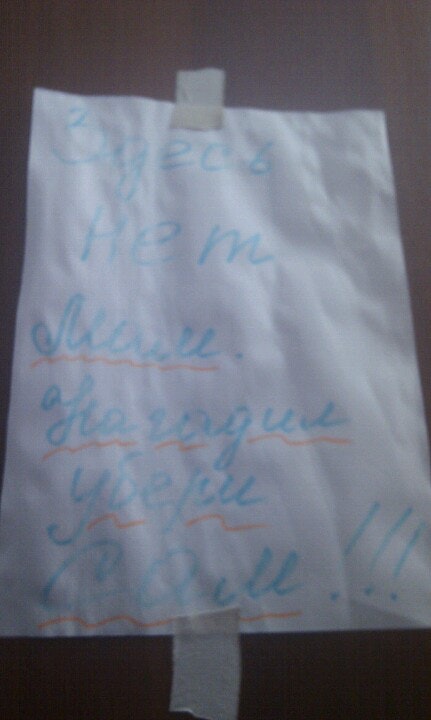 Здесь
нет
Мам.
Нагадил
убери
Сам.!!!